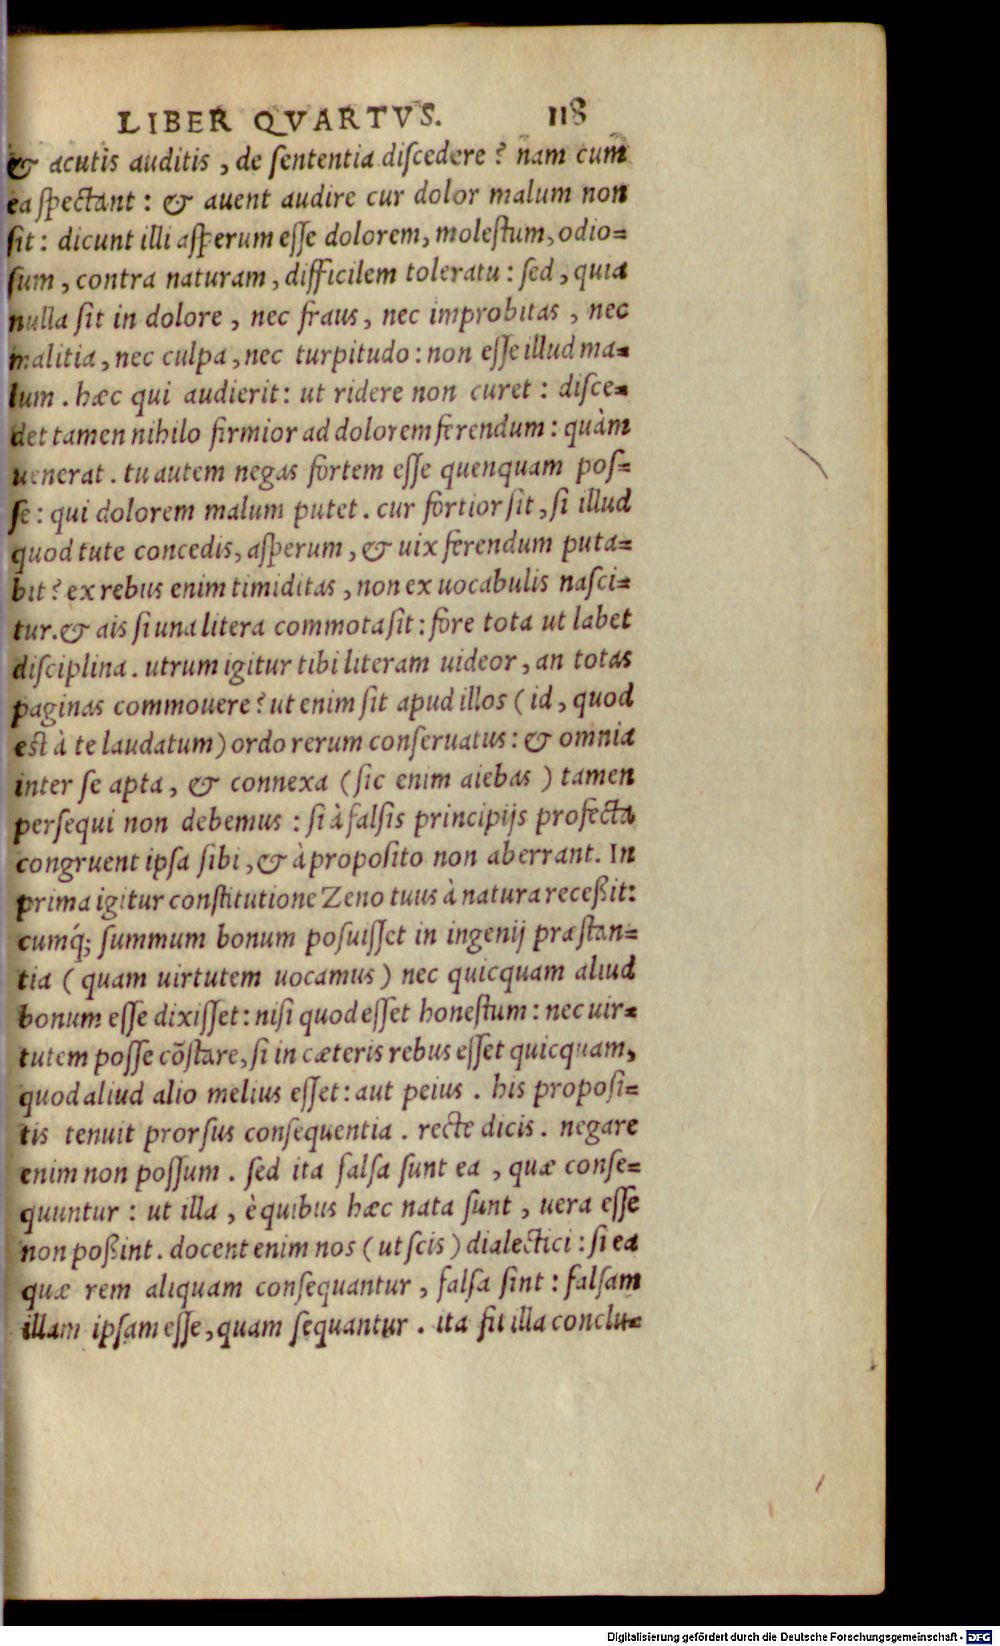 LIBER QVARTVS. 118
& acutis auditis, de ſententia diſcedere? nam cum
ea ſpectant: & auent audire cur dolor malum non
ſit: dicunt illi aſperum eſſe dolorem, moleſtum, odio=
ſum, contra naturam, difficilem toleratu: ſed, quia
nulla ſit in dolore, nec fraus, nec improbitas, nec
malitia, nec culpa, nec turpitudo: non eſſe illud ma=
lum. hæc qui audierit: ut ridere non curet: diſce=
det tamen nihilo firmior ad dolorem ferendum: quàm
uenerat. tu autem negas fortem eſſe quenquam poſ=
ſe: qui dolorem malum putet. cur fortior ſit, ſi illud
quod tute concedis, aſperum, & uix ferendum puta=
bit? ex rebus enim timiditas, non ex uocabulis naſci=
tur. & ais ſi una litera commota ſit: fore tota ut labet
diſciplina. utrum igitur tibi literam uideor, an totas
paginas commouere? ut enim ſit apud illos (id, quod
eſt à te laudatum) ordo rerum conſeruatus: & omnia
inter ſe apta, & connexa (ſic enim aiebas) tamen
perſequi non debemus: ſi à falſis principijs profecta
congruent ipſa ſibi, & à propoſito non aberrant. In
prima igitur conſtitutione Zeno tuus à natura receßit:
cumq́; ſummum bonum poſuiſſet in ingenij præſtan=
tia (quam uirtutem uocamus) nec quicquam aliud
bonum eſſe dixiſſet: niſi quod eſſet honeſtum: nec uir=
tutem poſſe cõſtare, ſi in cæteris rebus eſſet quicquam,
quod aliud alio melius eſſet: aut peius. his propoſi=
tis tenuit prorſus conſequentia. recte dicis. negare
enim non poſſum. ſed ita falſa ſunt ea, quæ conſe=
quuntur: ut illa, è quibus hæc nata ſunt, uera eſſe
non poßint. docent enim nos (ut ſcis) dialectici: ſi ea
quæ rem aliquam conſequantur, falſa ſint: falſam
illam ipſam eſſe, quam ſequantur. ita fit illa conclu=
Digitalisierung gefördert durch die Deutsche Forschungsgemeinschaft - DFG